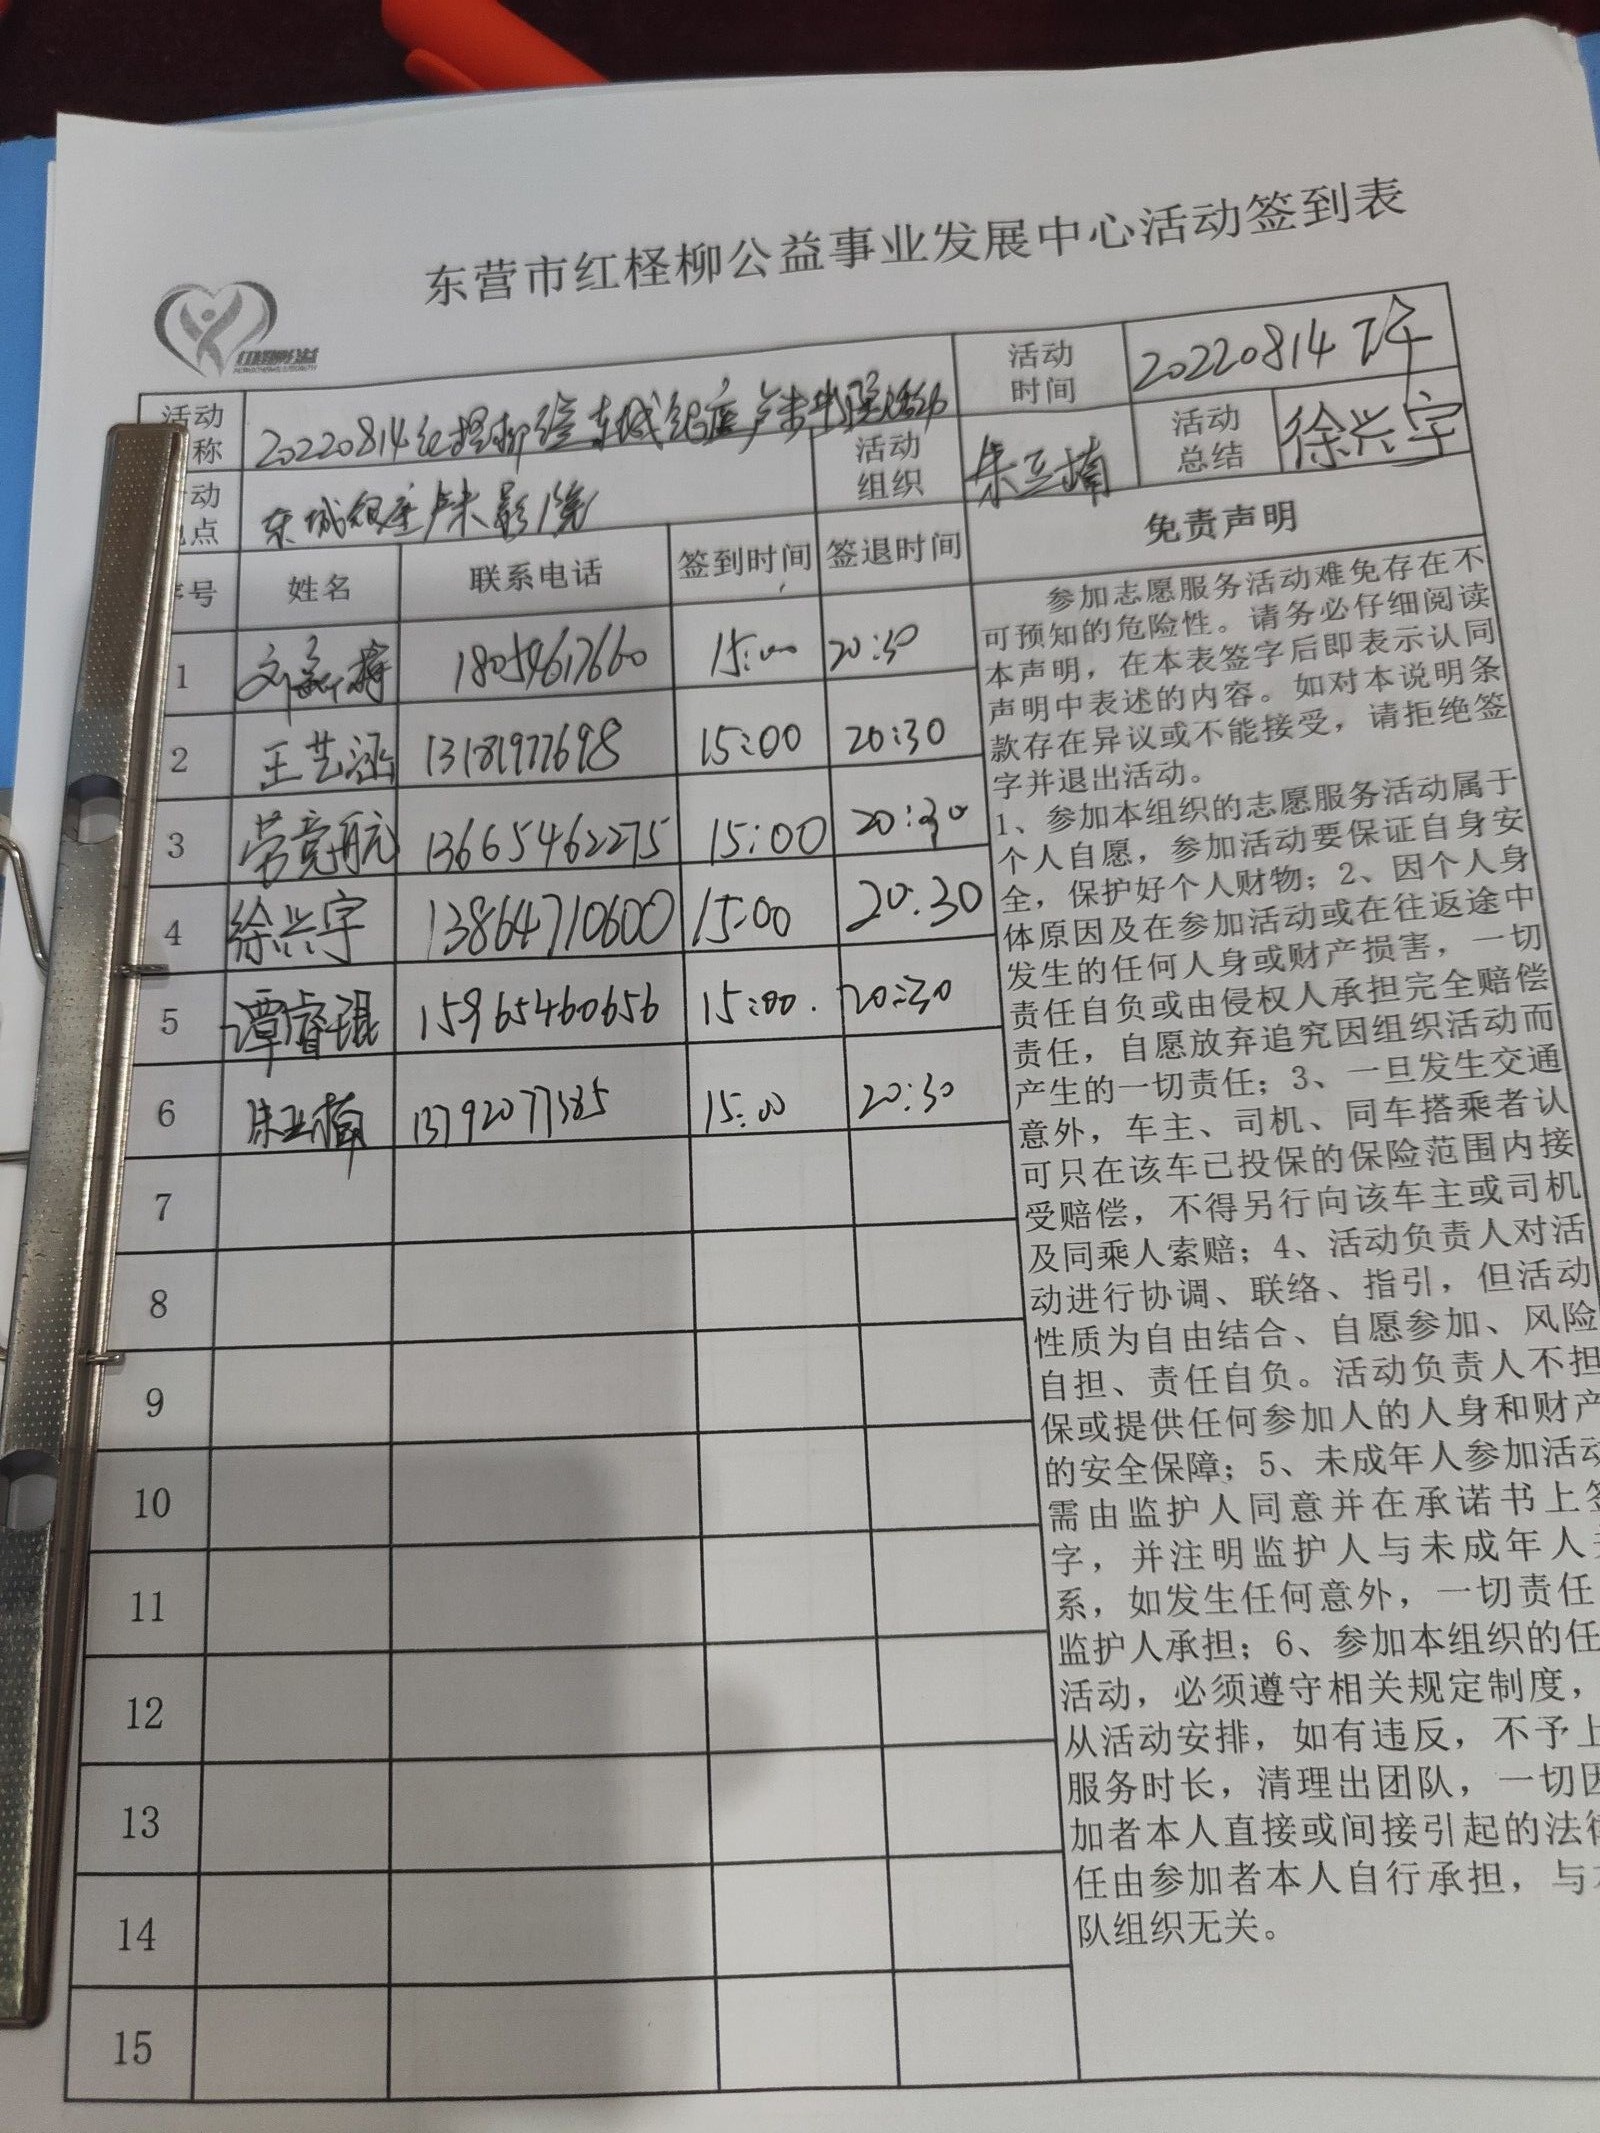 东营市红柽柳公益事业发展中心活动签到表
活动
时间
20220814 下午
活动
称
20220814红柽柳
东城银座卢米影院活动
动
点
东城银座卢米影院
活动
组织
朱亚楠
活动
总结
徐兴宇
免责声明
序号 姓名 联系电话 签到时间 签退时间
1 18054617660 15:00 20:30
2 王艺涵 13181977698 15:00 20:30
3 劳竞航 13665462275 15:00 20:30
4 徐兴宇 13864710600 15:00 20:30
5 谭睿琨 15965460656 15:00 20:30
6 朱亚楠 13792077385 15:00 20:30
7
8
9
10
11
12
13
14
15
参加志愿服务活动难免存在不
可预知的危险性。请务必仔细阅读
本声明，在本表签字后即表示认同
声明中表述的内容。如对本说明条
款存在异议或不能接受，请拒绝签
字并退出活动。
1、参加本组织的志愿服务活动属于
个人自愿，参加活动要保证自身安
全，保护好个人财物；2、因个人身
体原因及在参加活动或在往返途中
发生的任何人身或财产损害，一切
责任自负或由侵权人承担完全赔偿
责任，自愿放弃追究因组织活动而
产生的一切责任；3、一旦发生交通
意外，车主、司机、同车搭乘者认
可只在该车已投保的保险范围内接
受赔偿，不得另行向该车主或司机
及同乘人索赔；4、活动负责人对活
动进行协调、联络、指引，但活动
性质为自由结合、自愿参加、风险
自担、责任自负。活动负责人不担
保或提供任何参加人的人身和财产
的安全保障；5、未成年人参加活动
需由监护人同意并在承诺书上签
字，并注明监护人与未成年人关
系，如发生任何意外，一切责任
监护人承担；6、参加本组织的任
活动，必须遵守相关规定制度，
从活动安排，如有违反，不予上
服务时长，清理出团队，一切因
加者本人直接或间接引起的法律
任由参加者本人自行承担，与本
队组织无关。